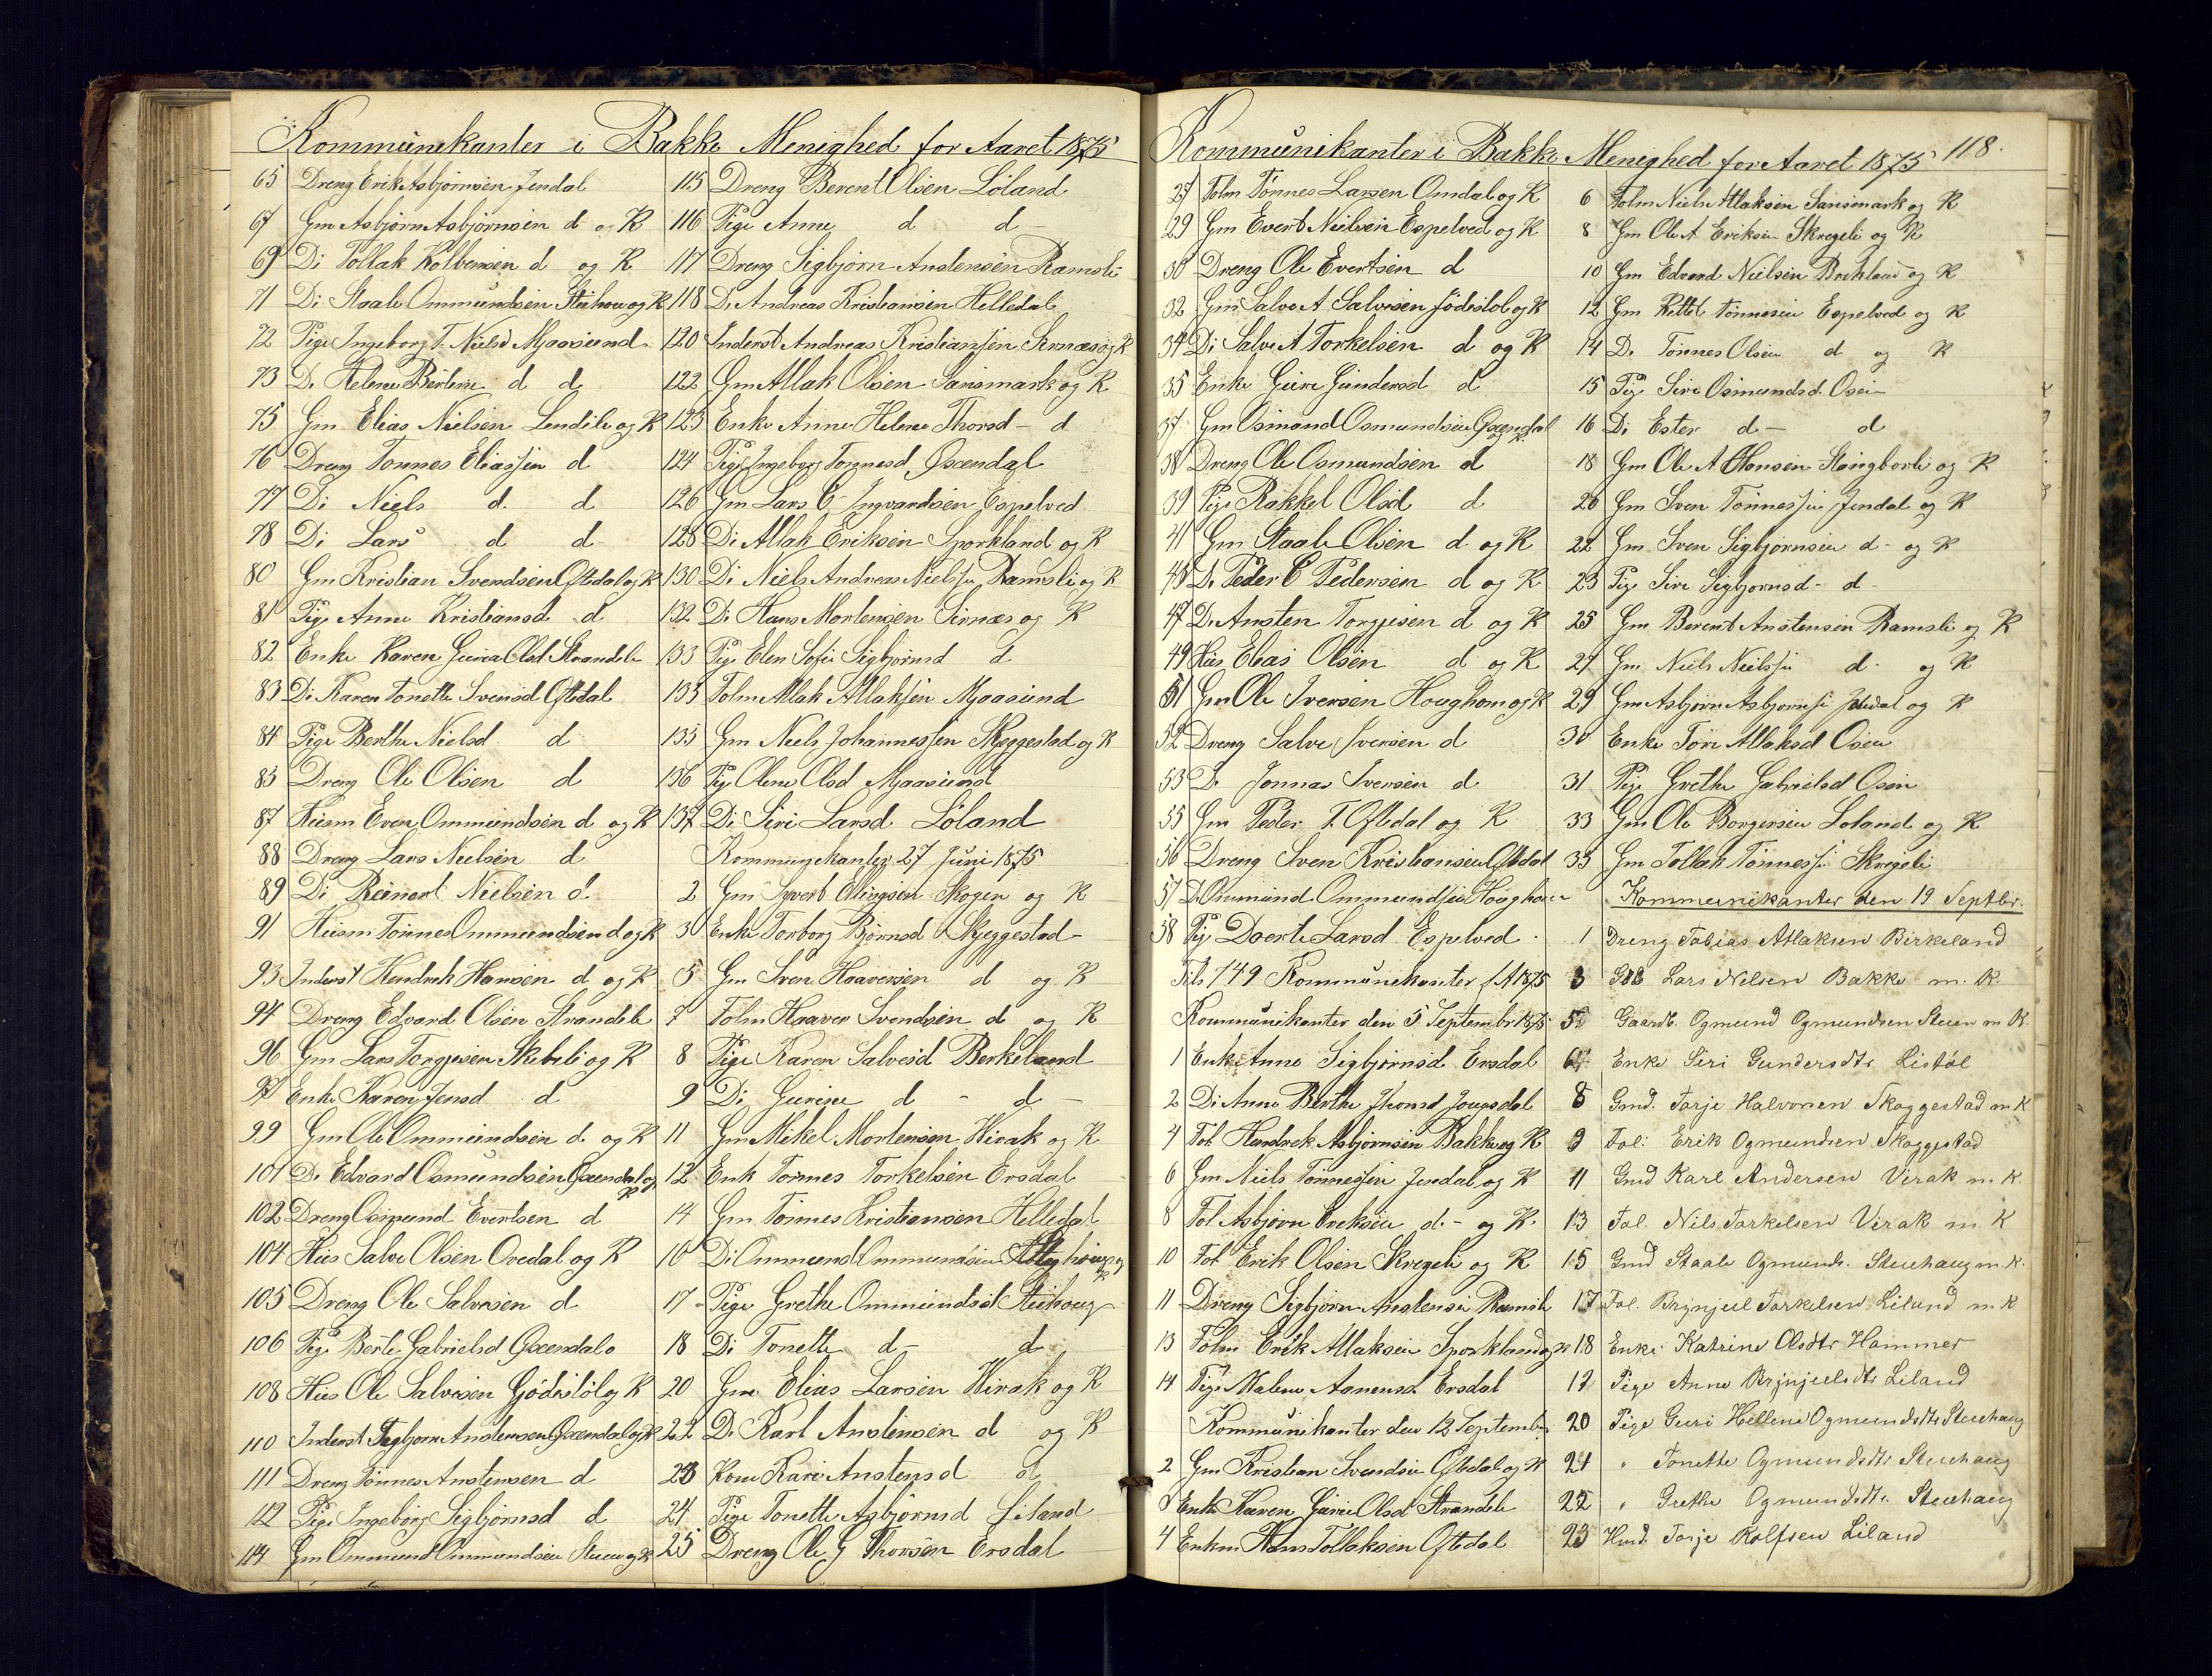 Kommunikanter i Bakke Menighed for Aaret 1875
65 Dreng Erik Asbjørnsen Jendal
67 Gm Asbjørn Asbjørnsen d og K
69 Di Tollak Kolbensen d og K
71 Di Staale Ommundsen Stuhou og K
72 Pige Ingeborg T. Nielsd Mjaasund
73 D. Helene Bertine d d
75 Gm Elias Nielsen Lendile og K
76 Dreng Tønnes Eliassen d
77 Di Niels d d
78 Di Lars d d
80 Gm Kristian Svendsen Oftedal og K
81 Pige Anne Kristiansd d
82 Enke Karen Guria Olsd Strandele
83 Di Karen Tonette Svensd Oftedal
84 Pige Berthe Nielsd d
85 Dreng Ole Olsen d
87 Husm Even Ommundsen d og K
88 Dreng Lars Nielsen d
89 Di Reinert Nielsen d
91 Husm Tønnes Ommundsen d og K
93 Inderst Hendrek Hansen d og K
94 Dreng Edvard Olsen Strandele
96 Gm Lars Torgjesen Skibeli og K
97 Enke Karen Jensd d
99 Gm Ole Ommundsen d og K
101 Di Edvard Osmundsen Øxendal og K
102 Dreng Osmund Evertsen d
104 Hus Salve Olsen Ovedal og K
105 Dreng Ole Salvesen d
106 Pige Berte Gabrielsd Øxendal
108 Hus Ole Salvesen Gjødestøl og K
110 Inderst Sigbjørn Anstensen Øxendal og K
111 Dreng Tønnes Anstensen d
112 Pige Ingeborg Sigbjørnsd d
114 Gm Ommund Ommundsen Stuen og K
115 Dreng Berent Olsen Løland
116 Pige Anne d d
117 Dreng Sigbjørn Anstensen Ramsli
118 D. Andreas Kristiansen Helledal
120 Inderst Andreas Kristiansen Sirnæs og K
122 Gm Atlak Olsen Sansmark og K
123 Enke Anne Helene Thorsd - d
124 Pige Ingeborg Tonnesd Øxendal
126 Gm Lars C Ingvardsen Espelved
128 Di Atlak Eriksen Sporkland og K
130 Di Niels Andreas Nielsen Ramsli og K
132 Di Hans Mortensen Sirnæs og K
133 Pige Elen Sofie Sigbjørnsd d
133 Tolm Atlak Atlaksen Mjaasund
135 Gm Niels Johannessen Skjeggestad og K
136 Pig Olene Olsd Mjaasund
137 Di Siri Larsd Løland
Kommunekanter 27 Juni 1875
2 Gm Syvert Ellingsen Skogen og K
3 Enke Torborg Bjørnsd Skjeggestad
5 Gm Sven Haaversen d og K
7 Folm Haaver Svendsen d og K
8 Pige Karen Salvesd Berkeland
9 Di Gurine d - d
11 Gm Mikel Mortensen Wirak og K
12 Enk Tønnes Torkelsen Ersdal
14 Gm Tønnes Kristiansen Helledal
16 Di Ommund Ommundsen og K
17 Pige Grethe Ommundsd Stuhoug
18 Di Tonette d - d
20 Gm Elias Larsen Wirak og K
22 D. Karl Anstensen d og K
23 Kone Kari Anstensd d
24 Pige Tonette Asbjørnsd Liland
25 Dreng Ole G Thorsen Ersdal
Kommunikanter i Bakke Menighed for Aaret 1875 118.
27 Folm Tønnes Larsen Omdal og K
29 Gm Evert Nielsen Espelved og K
30 Dreng Ole Evertsen d
32 Gm Salve A Salvesen Jødestøl og K
34 Di Salve A Torkelsen d og K
35 Enke Gure Gundersd d
37 Gm Osmund Osmundsen Øxendal og K
38 Dreng Ole Osmundsen d
39 Pige Rakkel Olsd d
41 Gm Staale Olsen d og K
45 D. Peder C Pedersen d og K
47 D. Ansten Torgjesen d og K
49 Hus Elias Olsen d og K
51 Gm Ole Iversen Houghom og K
52 Dreng Salve Iversen d
53 D. Jonnas Iversen d
55 Gm Peder T. Oftedal og K
56 Dreng Sven Kristiansen Oftedal
57 D. Ommund Ommundsen Houghom
58 Pige Doerte Larsd Espelved
Tils 149 Kommunekanter f A 1875
Kommunikanter den 5 Septembr 1875
1 Enke Anne Sigbjørnsd Ersdal
2 Di Anne Berthe Thorsd Joupsdal
4 Fol Hendrek Asbjørnsen Bakke og K
6 Gm Niels Tønnessen Jendal og K
8 Fol Asbjørn Ereksen d - og K
10 Fol Erik Olsen Skregeli og K
11 Dreng Sigbjørn Anstensen Ramsli
13 Folm Erik Atlaksen Sporkland og K
14 Pige Malene Aanensd Ersdal
Kommunikanter den 12 Septembr
2 Gm Kristian Svendsen Oftedal og K
3 Enke Karen Gurie Olsd Strandele
4 Enkm Hans Tollaksen Oftedal
6 Folm Niels Atlaksen Sansmark og K
8 Gm Ole A Eriksen Skregeli og K
10 Gm Edvard Nielsen Birkland og K
12 Gm Kettel Tønnesen Espelved og K
14 D. Tønnes Olsen d og K
15 Pige Sire Osmundsd. Osen
16 Di Ester d - d
18 Gm Ole A Hansen Stangborli og K
20 Gm Sven Tønnessen Jendal og K
22 Gm Sven Sigbjørnsen d - og K
23 Pige Sire Sigbjørnsd - d
25 Gm Berent Anstensen Ramsli og K
27 Gm Niels Nielsen d. og K
29 Gm Asbjørn Asbjørnsen Jendal og K
30 Enke Tore Atlaksd Osen
31 Pige Grethe Gabrielsd Osen
33 Gm Ole Borgersen Loland og K
35 Gm Tollak Tønnessen Skregeli
Kommunikanter den 19 Septbr.
1 Dreng Tobias Atlaksen Birkeland
3 Gdb Lars Nilsen Bakke m. K.
5 Gaardb. Ogmund Ogmundsen Stuen m K.
6 Enke Siri Gundersdtr Listøl
8 Gmd. Torje Halvorsen Skaggestad m K
9 Fol: Erik Ogmundsen Skaggestad
11 Gmd Karl Andersen Virak m. K.
13 Fol. Nils Torkelsen Virak m. K
15 Gmd Staale Ogmunds. Stuehaug m. K.
17 Fol. Brynjuel Torkelsen Liland m K
18 Enke Katrine Olsdtr Hammer
19 Pige Anne Brynjuelsdtr Liland
20 Pige Guri Hellene Ogmundsdtr Stuehaug
21 " Tonette Ogmundsdtr Stuehaug
22 " Grethe Ogmundsdtr. Stuehaug
23 Hmd. Torje Rolfsen Liland